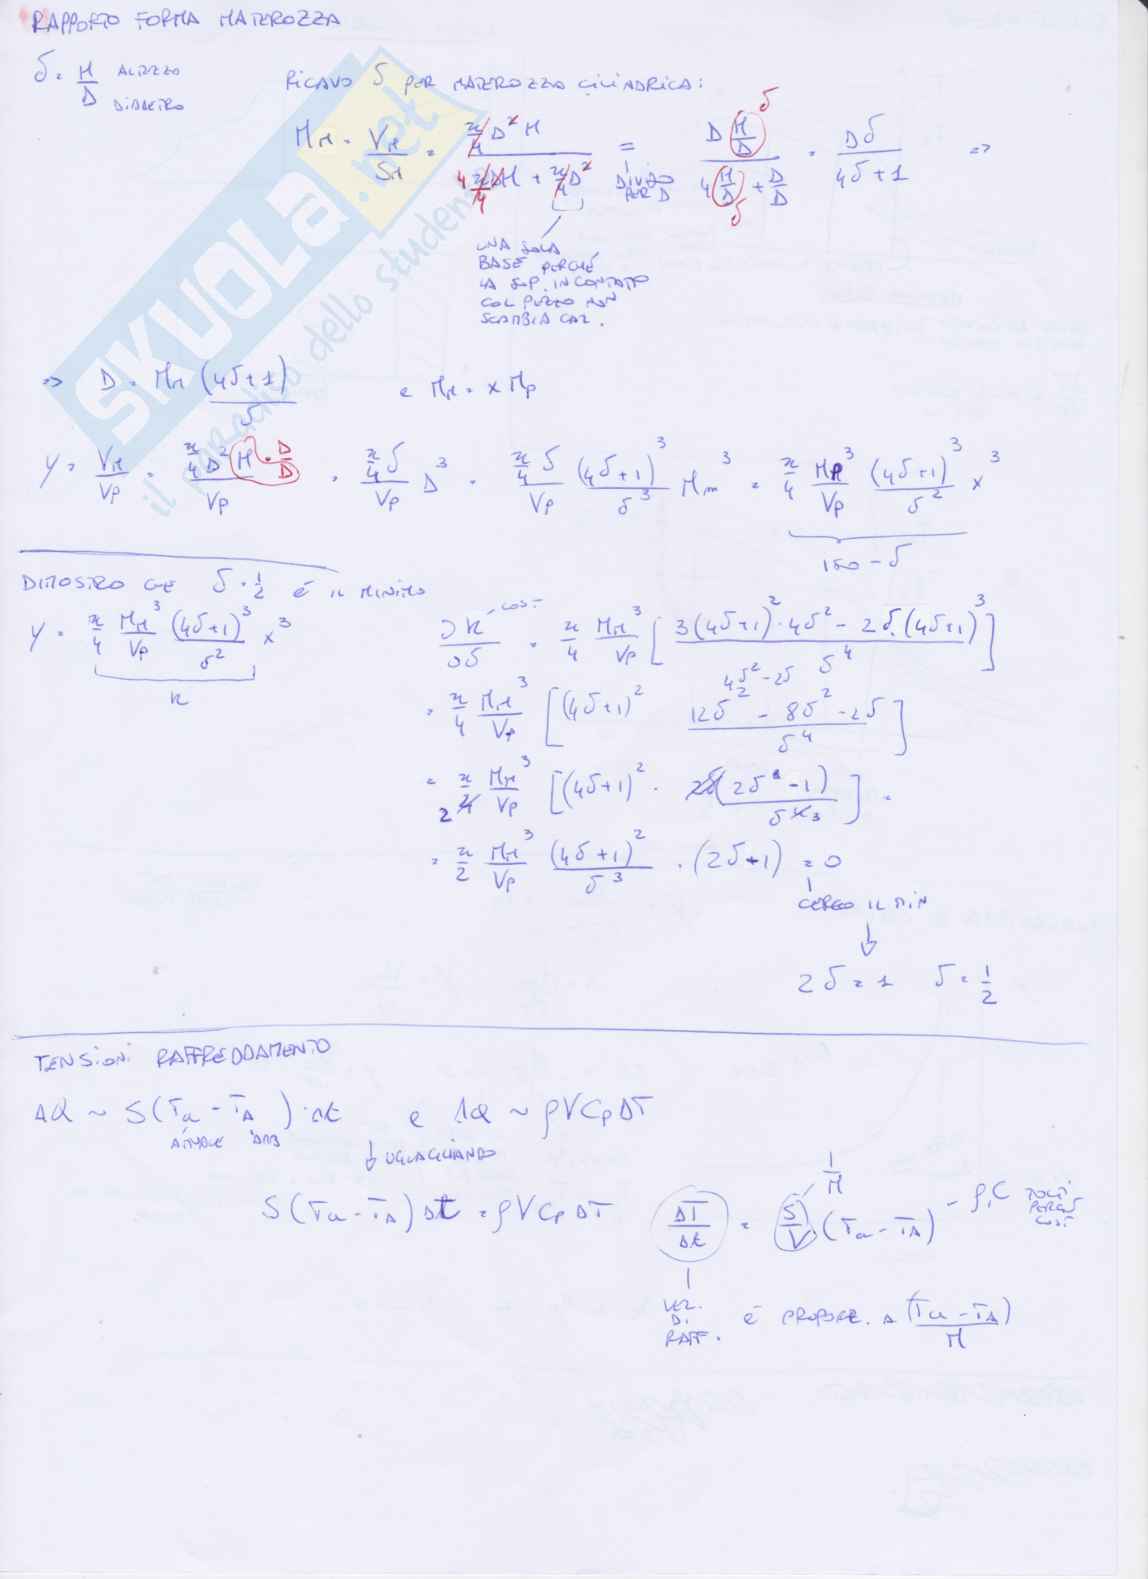 RAPPORTO FORMA MATEROZZA
δ = H/D ALTEZZA DIAMETRO
RICAVO δ PER MATEROZZA CILINDRICA:
M_M = V_M/S_M = (π/4 D² H)/(4 π/4 D H + π/4 D²) = (D H/D)/(4 H/D + D/D) = Dδ/(4δ+1) =>
DIVIDO PER D
δ
δ
UNA SOLA
BASE PERCHÉ
LA SUP. IN CONTATTO
COL PEZZO NON
SCAMBIA CAL.
=> D = M_M (4δ+1)/δ e M_M = x M_P
Y = V_M/V_P = (π/4 D² H · D/D)/V_P = (π/4 δ)/V_P D³ = (π/4 δ)/V_P (4δ+1)³/δ³ M_m³ = π/4 M_P³/V_P (4δ+1)³/δ² x³
ISO-δ
DIMOSTRO CHE δ = 1/2 É IL MINIMO
Y = π/4 M_M³/V_P (4δ+1)³/δ² x³
K
COST
∂K/∂δ = π/4 M_M³/V_P [(3(4δ+1)²·4δ² - 2δ·(4δ+1)³)/δ⁴]
4δ²-2δ
= π/4 M_M³/V_P [(4δ+1)² (12δ² - 8δ² - 2δ)/δ⁴]
= π/2 4 M_M³/V_P [(4δ+1)² · 2δ(2δ - 1)/δ⁴ 3] =
= π/2 M_M³/V_P (4δ+1)²/δ³ · (2δ+1) = 0
CERCO IL MIN
2δ = 1 δ = 1/2
TENSIONI RAFFREDDAMENTO
ΔQ ~ S(Ta - T_A)·Δt e ΔQ ~ ρVCpΔT
ATTUALE AMB
UGUAGLIANDO
S(Ta - T_A)Δt = ρVCpΔT ΔT/Δt = S/V (Ta - T_A) - ρ, C TOLTI PERCHÉ COST
1/M
VEL.
DI
RAFF.
É PROPORZ. A (Ta - T_A)/M
SKUOLA.net
il paradiso dello studente